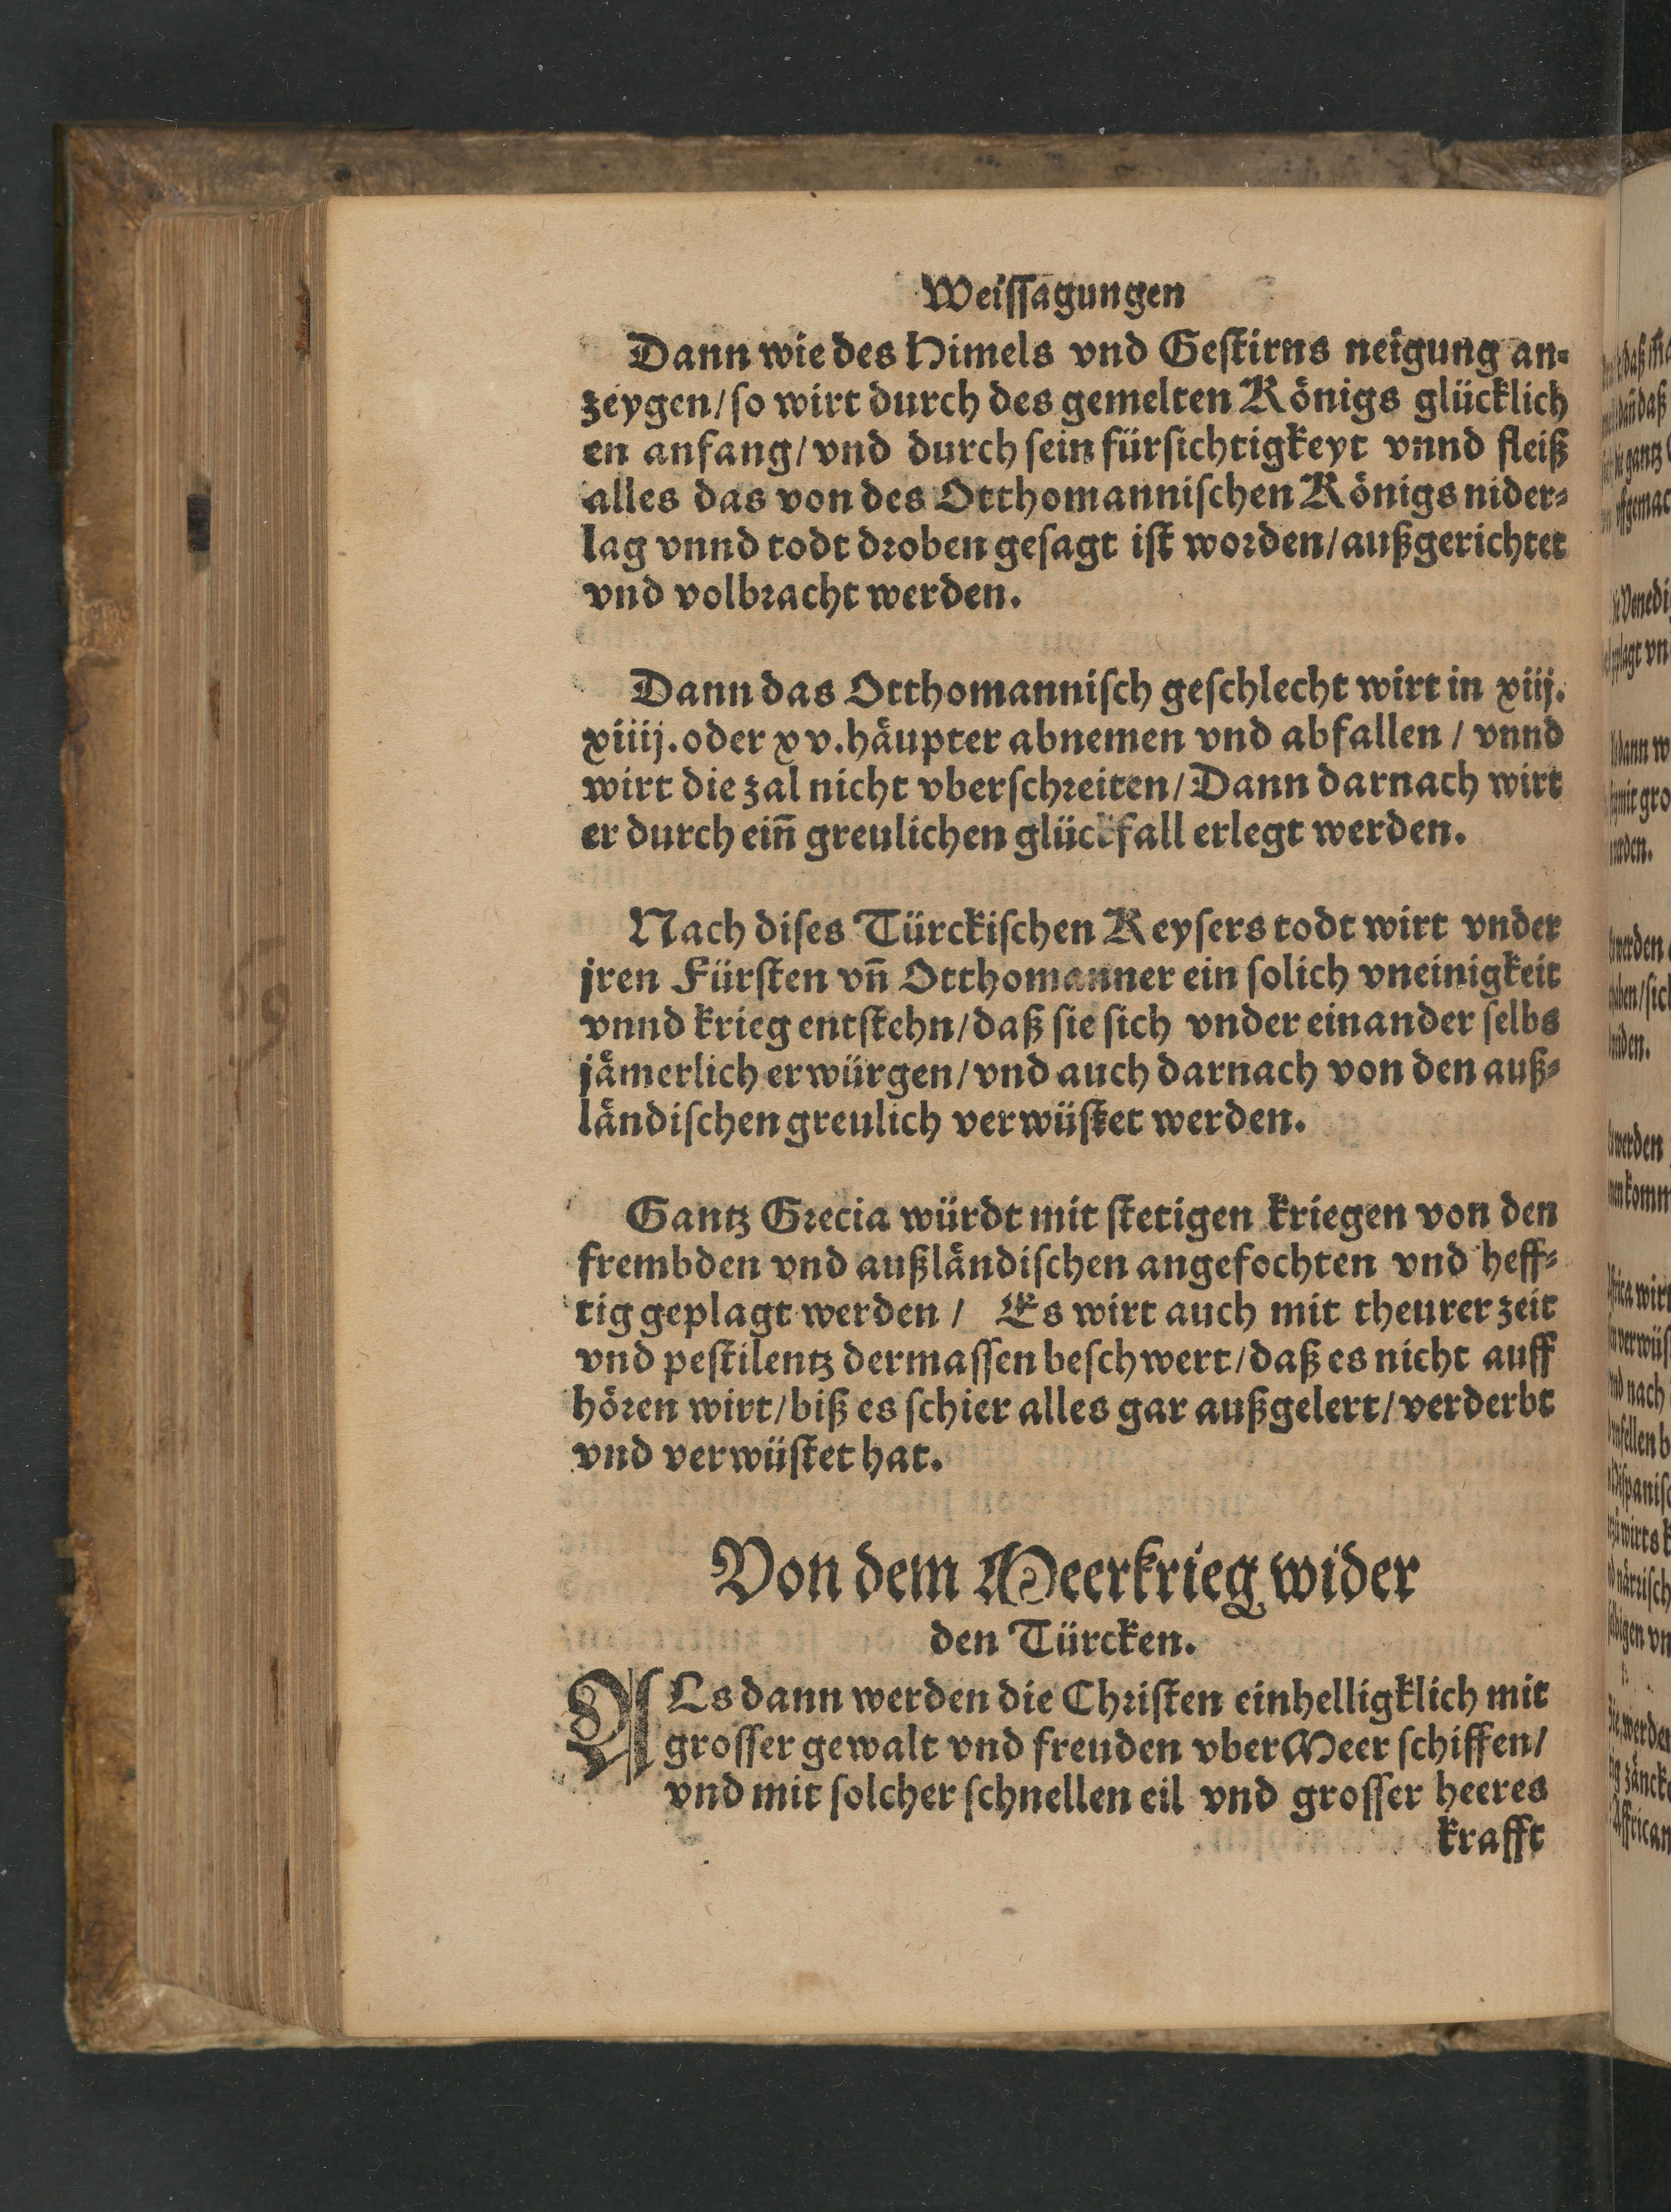 Weiſſagungen
Dann wie des Himels vnd Geſtirns neigung an⸗
zeygen/ ſo wirt durch des gemelten Königs glücklich
en anfang/ vnd durch ſein fürſichtigkeyt vnnd fleiß
alles das von des Otthomanniſchen Königs nider⸗
lag vnnd todt droben geſagt iſt worden/ außgerichtet
vnd volbracht werden.
Dann das Otthomanniſch geſchlecht wirt in xiij.
xiiij. oder xv. häupter abnemen vnd abfallen / vnnd
wirt die zal nicht vberſchreiten/ Dann darnach wirt
er durch ein̄ greulichen glückfall erlegt werden.
Nach diſes Türckiſchen Keyſers todt wirt vnder
jren Fürſten vn̄ Otthomanner ein ſolich vneinigkeit
vnnd krieg entſtehn/ daß ſie ſich vnder einander ſelbs
jämerlich erwürgen/ vnd auch darnach von den auß⸗
ländiſchen greulich verwüſtet werden.
Gantz Grecia würdt mit ſtetigen kriegen von den
frembden vnd außländiſchen angefochten vnd heff⸗
tig geplagt werden / Es wirt auch mit theurer zeit
vnd peſtilentz dermaſſen beſchwert/ daß es nicht auff
hören wirt/ biß es ſchier alles gar außgelert/ verderbt
vnd verwüſtet hat.
Von dem Meerkrieg wider
den Türcken.
ALs dann werden die Chriſten einhelligklich mit
groſſer gewalt vnd freuden vber Meer ſchiffen/
vnd mit ſolcher ſchnellen eil vnd groſſer heeres
krafft